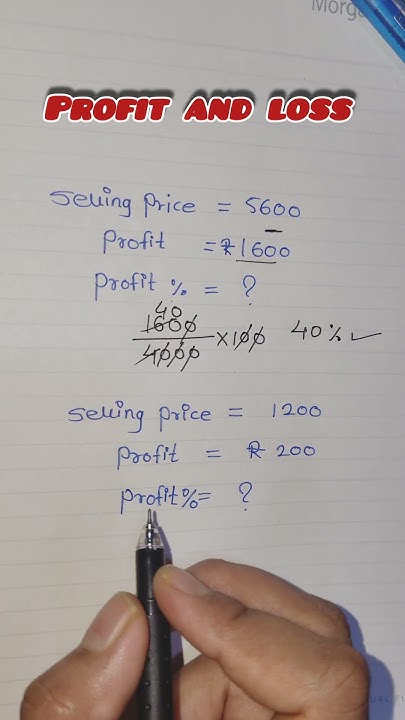 Morga
PROFIT AND LOSS
Selling price = 5600
Profit = ₹1600
Profit % = ?
40
1600
4000
×100
40%
Selling price = 1200
Profit = ₹ 200
Profit% = ?